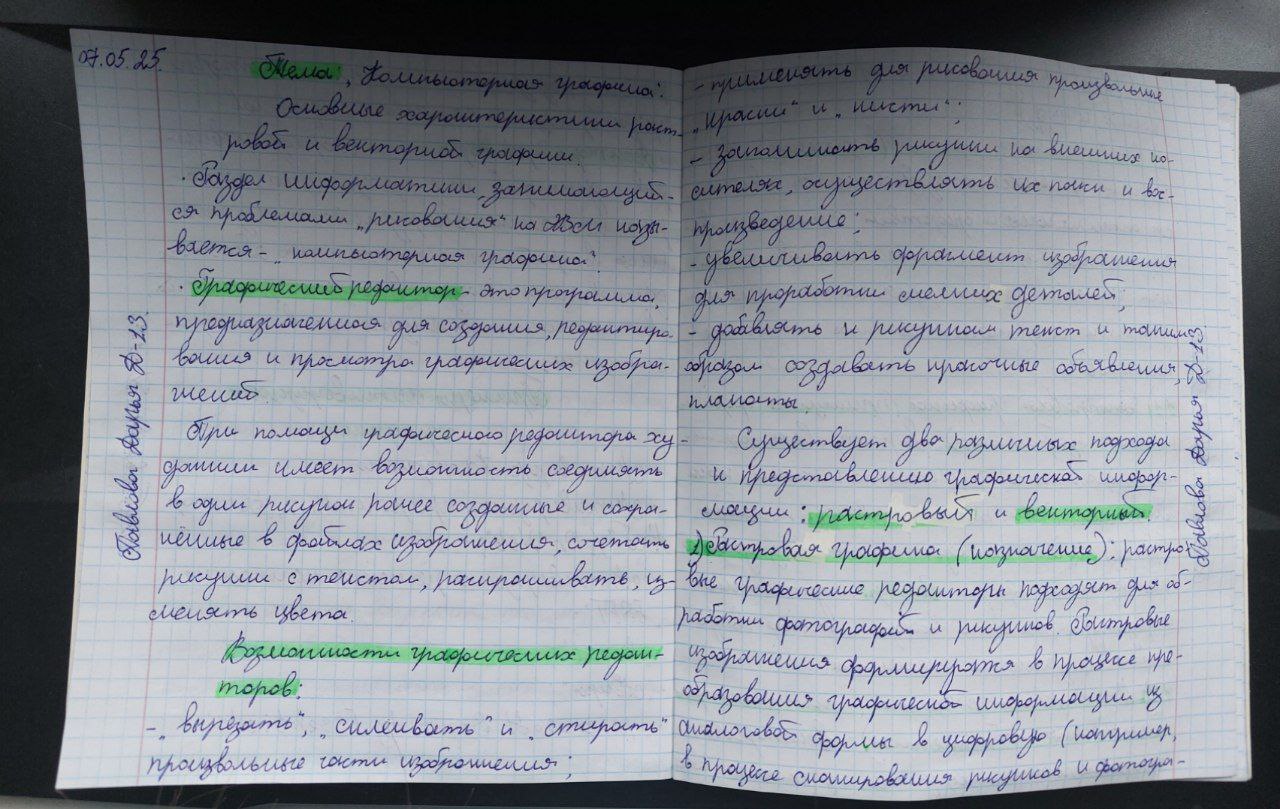 07.05.25.
Тема: „Компьютерная графика".
Основные характеристики раст-
ровой и векторной графики.
· Раздел информатики, занимающий-
ся проблемами „рисования" на ЭВМ назы-
вается - „компьютерная графика".
· Графический редактор - это программа,
предназначенная для создания, редактиро-
вания и просмотра графических изобра-
жений.
При помощи графического редактора ху-
дожник имеет возможность соединять
в один рисунок ранее созданные и сохра-
нённые в файлах изображения, сочетать
рисунки с текстом, раскрашивать, из-
менять цвета.
Возможности графических редак-
торов:
- „вырезать", „склеивать" и „стирать"
произвольные части изображения;
Павлова Дарья Д-13
- применять для рисования произвольные
„краски" и „кисти";
- запоминать рисунки на внешних но-
сителях, осуществлять их поиск и вос-
произведение;
- увеличивать фрагмент изображения
для проработки мелких деталей;
- добавлять к рисункам текст и таким
образом создавать красочные объявления,
плакаты.
Существует два различных подхода
к представлению графической инфор-
мации: растровый и векторный.
1) Растровая графика (назначение): растро-
вые графические редакторы подходят для об-
работки фотографий и рисунков. Растровые
изображения формируются в процессе пре-
образования графической информации из
аналоговой формы в цифровую (например,
в процессе сканирования рисунков и фотогра-
Павлова Дарья Д-13